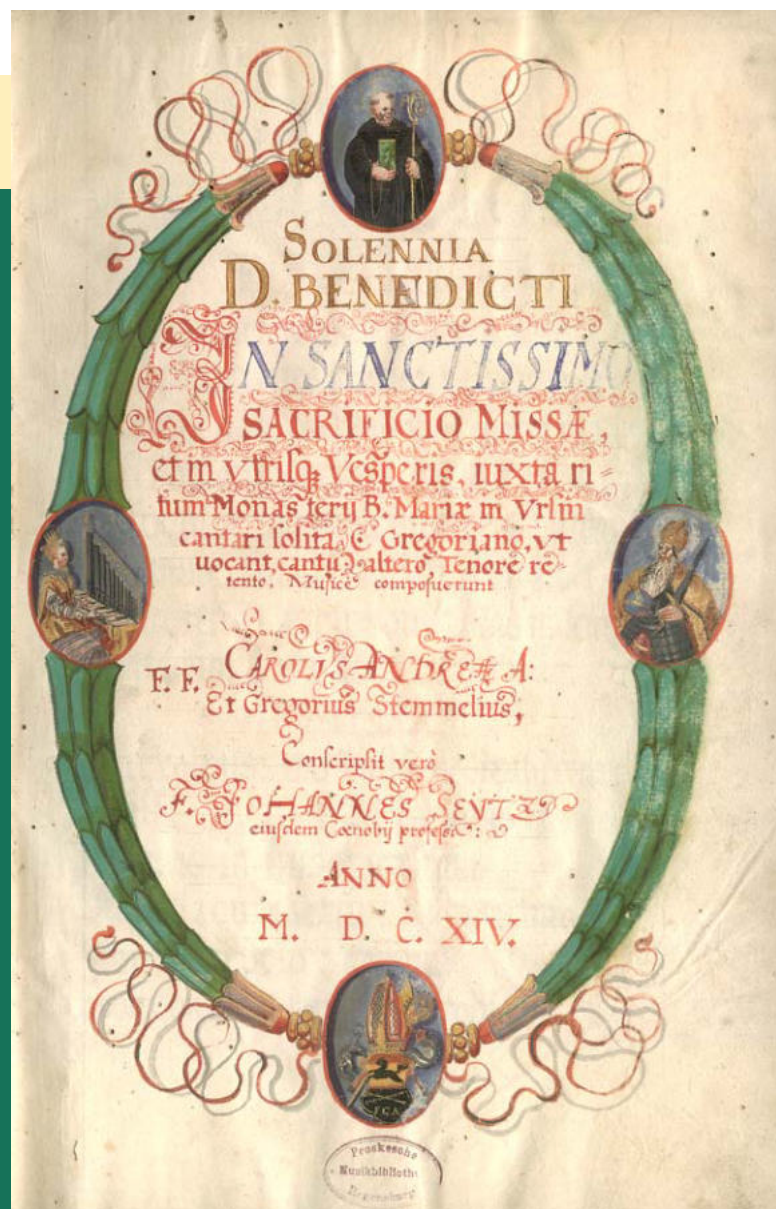 SOLENNIA
D. BENEDICTI
IN SANCTISSIMO
SACRIFICIO MISSÆ,
et in vtrisq; Vesperis, iuxta ri=
tum Monasterij B. Mariæ in Vrsin
cantari solita, & Gregoriano, vt
uocant, cantu altero, Tenore re=
tento. Musicè composuerunt
F. F. CAROLVS ANDREÆ A:
Et Gregorius Stemmelius,
Conscripsit verò
F. JOHANNES SEVTZ
eiusdem Cœnobij profess:
ANNO
M. D. C. XIV.
F C A
Proskesche
Musikbiblioth
Regensburg